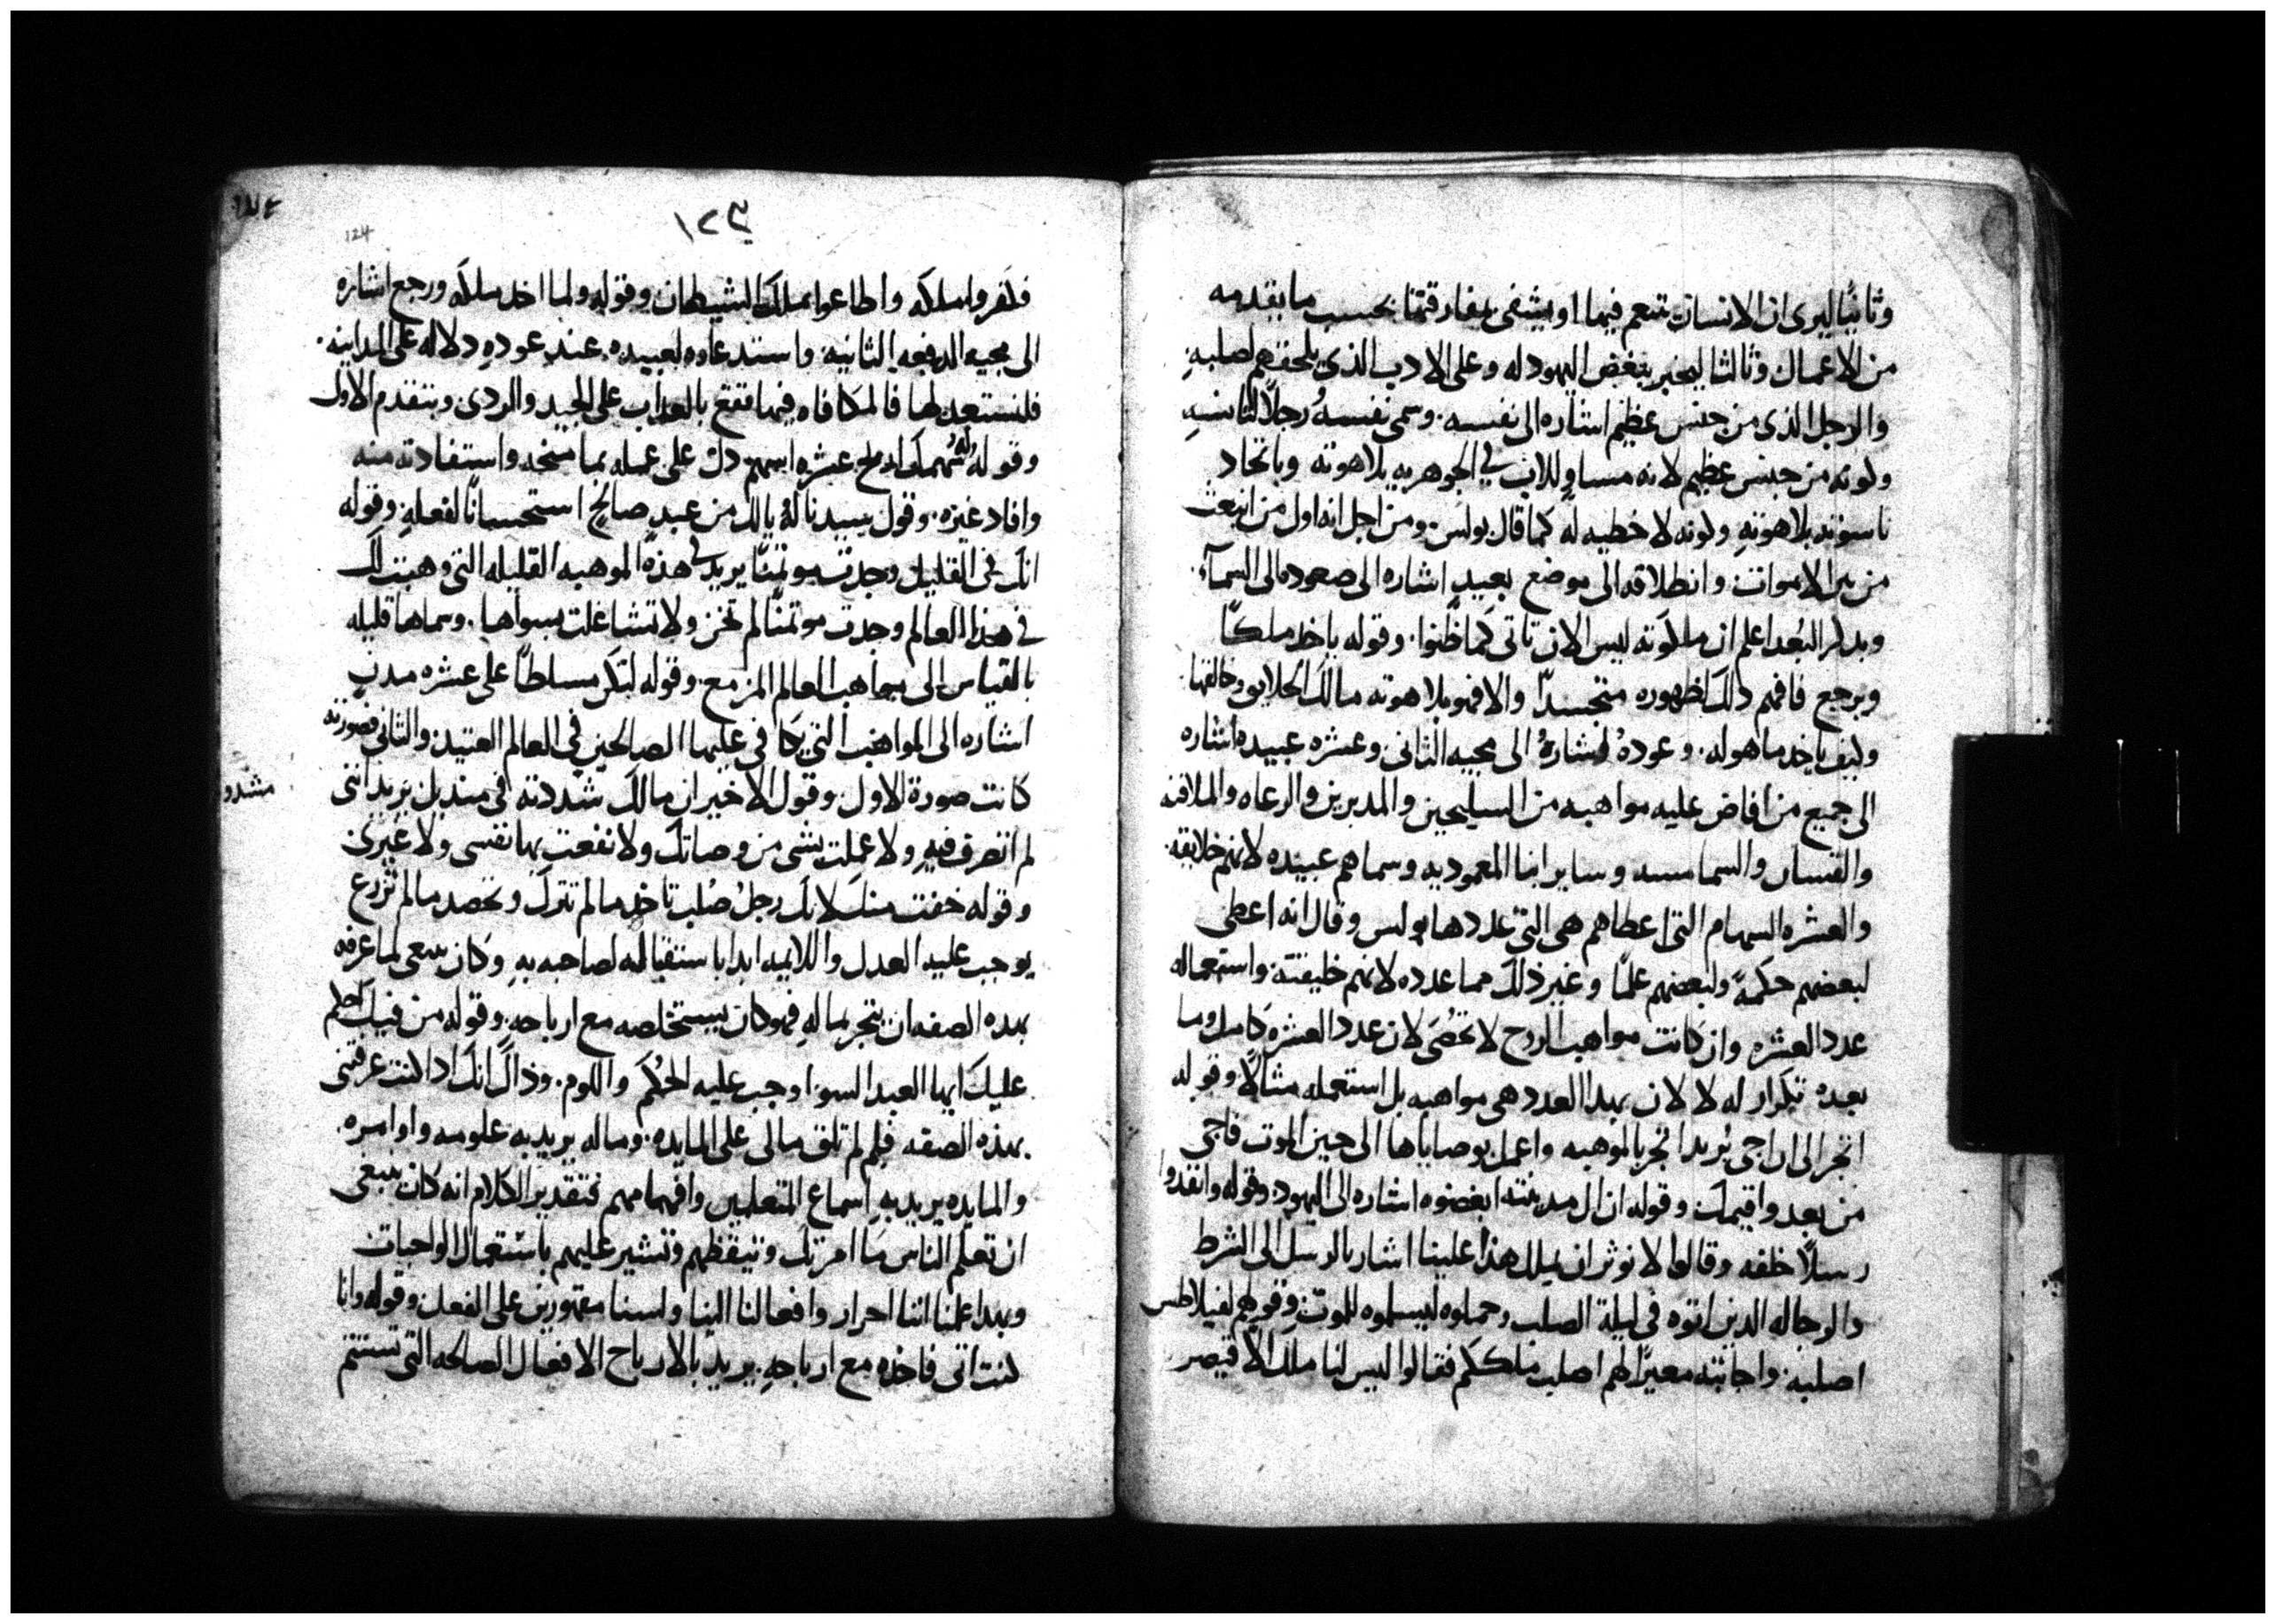 وثانيًا ليرى ان الانسان يتنعم فيها او يشقى بمفارقتنا بحسب ما يقدمه
من الاعمال وثالثا ليخبر ببغض اليهود له وعلى الادب الذي يلحقهم لصلبهِ
والرجل الذى من جنس عظيم اشاره الى نفسه. وسمى نفسهُ رجلاً لتانسهِ
ولونه من جنس عظيم لانه مساوٍ للاب في الجوهريه بلاهوته وباتحاد
ناسوته بلاهوتهِ ولونه لا خطيه له كما قال بولس. ومن اجل انه اول من انبعث
من بين الاموات وانطلاقه الى موضع بعيدٍ اشاره الى صعوده الى السمآء.
وبدلر البُعد اعلم ان ملكوته ليس الان تاتى كما ظنوا. وقوله ياخد ملكاً
ويرجع فافهم دالك لظهوره متجسداً والا فهو بلاهوته مالك الخلايق وخالقها.
وليف ياخد ما هوله. وعودهُ اشارهُ الى مجيه الثانى وعشره عبيده اشاره
الى جميع من افاض عليه مواهبه من السليحين والمدبرين والرعاه والملافنه
والقسان والشمامسه وساير ابنا المعموديه وسماهم عبيده لانهم خلايقه.
والعشره السهام التى اعطاهم هى التى عددها بولس وقال انه اعطى
لبعضهم حكمةً ولبعضهم علمًا وغير ذلك مما عدده لانهم خليقته. واستعماله
عدد العشره وان كانت مواهب الروح لا تحُصَى لان عدد العشره كامل وما
بعدهُ تكرار له لا لان بهدا العدد هى مواهبه بل استعمله مثالاً وقوله
اتجر الى ان اجى يُريد اتجر بالموهبه واعمل بوصاياها الى حين الموت فاجى
من بعد واقيمك وقوله ان ال مدينته ابغضوه اشاره الى اليهود وقوله وانفدوا
رسلاً خلفه وقالوا لا نوثر ان يملك هذا علينا اشار بالرسل الى الشرط
والرجاله الدين اتوه فى ليلة الصلب وحملوه ليسلموه للموت وقولهم لفيلاطس
اصلبه: واجابته معيرًا لهم اصلب ملككم فقالوا ليس لنا ملك الا قيصر
١٢٣
124
فلفروا ملكه واطاعوا بملك الشيطان وقوله ولما اخد ملكه ورجع اشاره
الى مجيه الدفعه الثانيه. واستدعاوه لعبيده عند عودهِ دلاله على المداينه.
فلنستعد لها فالمكافاه فيها تقع بالعذاب على الجيد والردى وبتقدم الاول
وقوله عشره اسهم دل على عمله بما منحه واستفادته منه
وافاد غيره. وقول سيدنا لهُ يالك من عبدٍ صالحٍ استحسانًا لفعلهِ وقوله
انك فى القليل وجدت موتمنًا يريد فى هذه الموهبه القليله التى وهبت لك
في هذا العالم وجدت موتمنًا لم تخن ولا تشاغلت بسواها. وسماها قليله
بالقياس الى مواهب العالم المزمع. وقوله لتكن مسلطاً على عشره مدنٍ
اشاره الى المواهب التى يكافى عليها الصالحين في العالم العتيد. والثانى فصورته
كانت صورة الاول. وقول الاخير ان مالك شددته فى منديل يريد اننى
مشدد
لم اتصرف فيهِ ولا عملت بشى من وصاتك ولا نفعت بها نفسى ولا غيرى
وقوله خفت منك لانك رجلُ صُلب تاخد ما لم تترك وتحصد ما لم تزرع
يوجب عليه العدل واللايمه ابدا باستقباله لصاحبه بهِ وكان ينبغى لما عرفه
بهده الصفه ان يتجر بماله فهو كان يستخلصه مع ارباحه. وقوله من فيك احلم
عليك ايها العبد السوا وجب عليه الحكم واللوم. وذاك انك ادا كنت عرفتنى
بهذه الصفه فلم لم تلق مالى على المايده. وماله يريد به علومه واوامره.
والمايده يريد بهِ اسماع المتعلمين وافهامهم فتقدير الكلام انه كان ينبغى
ان تعلم الناس ما امرتك وتيقظهم وتشير عليهم باستعمال الواجبات
وبهدا علمنا اننا احرار وافعالنا الينا ولسنا مقهورين على الفعل وقوله وانا
لنت اتى فاخذه مع ارباحهِ. يريد بالارباح الافعال الصالحه التى تستتم